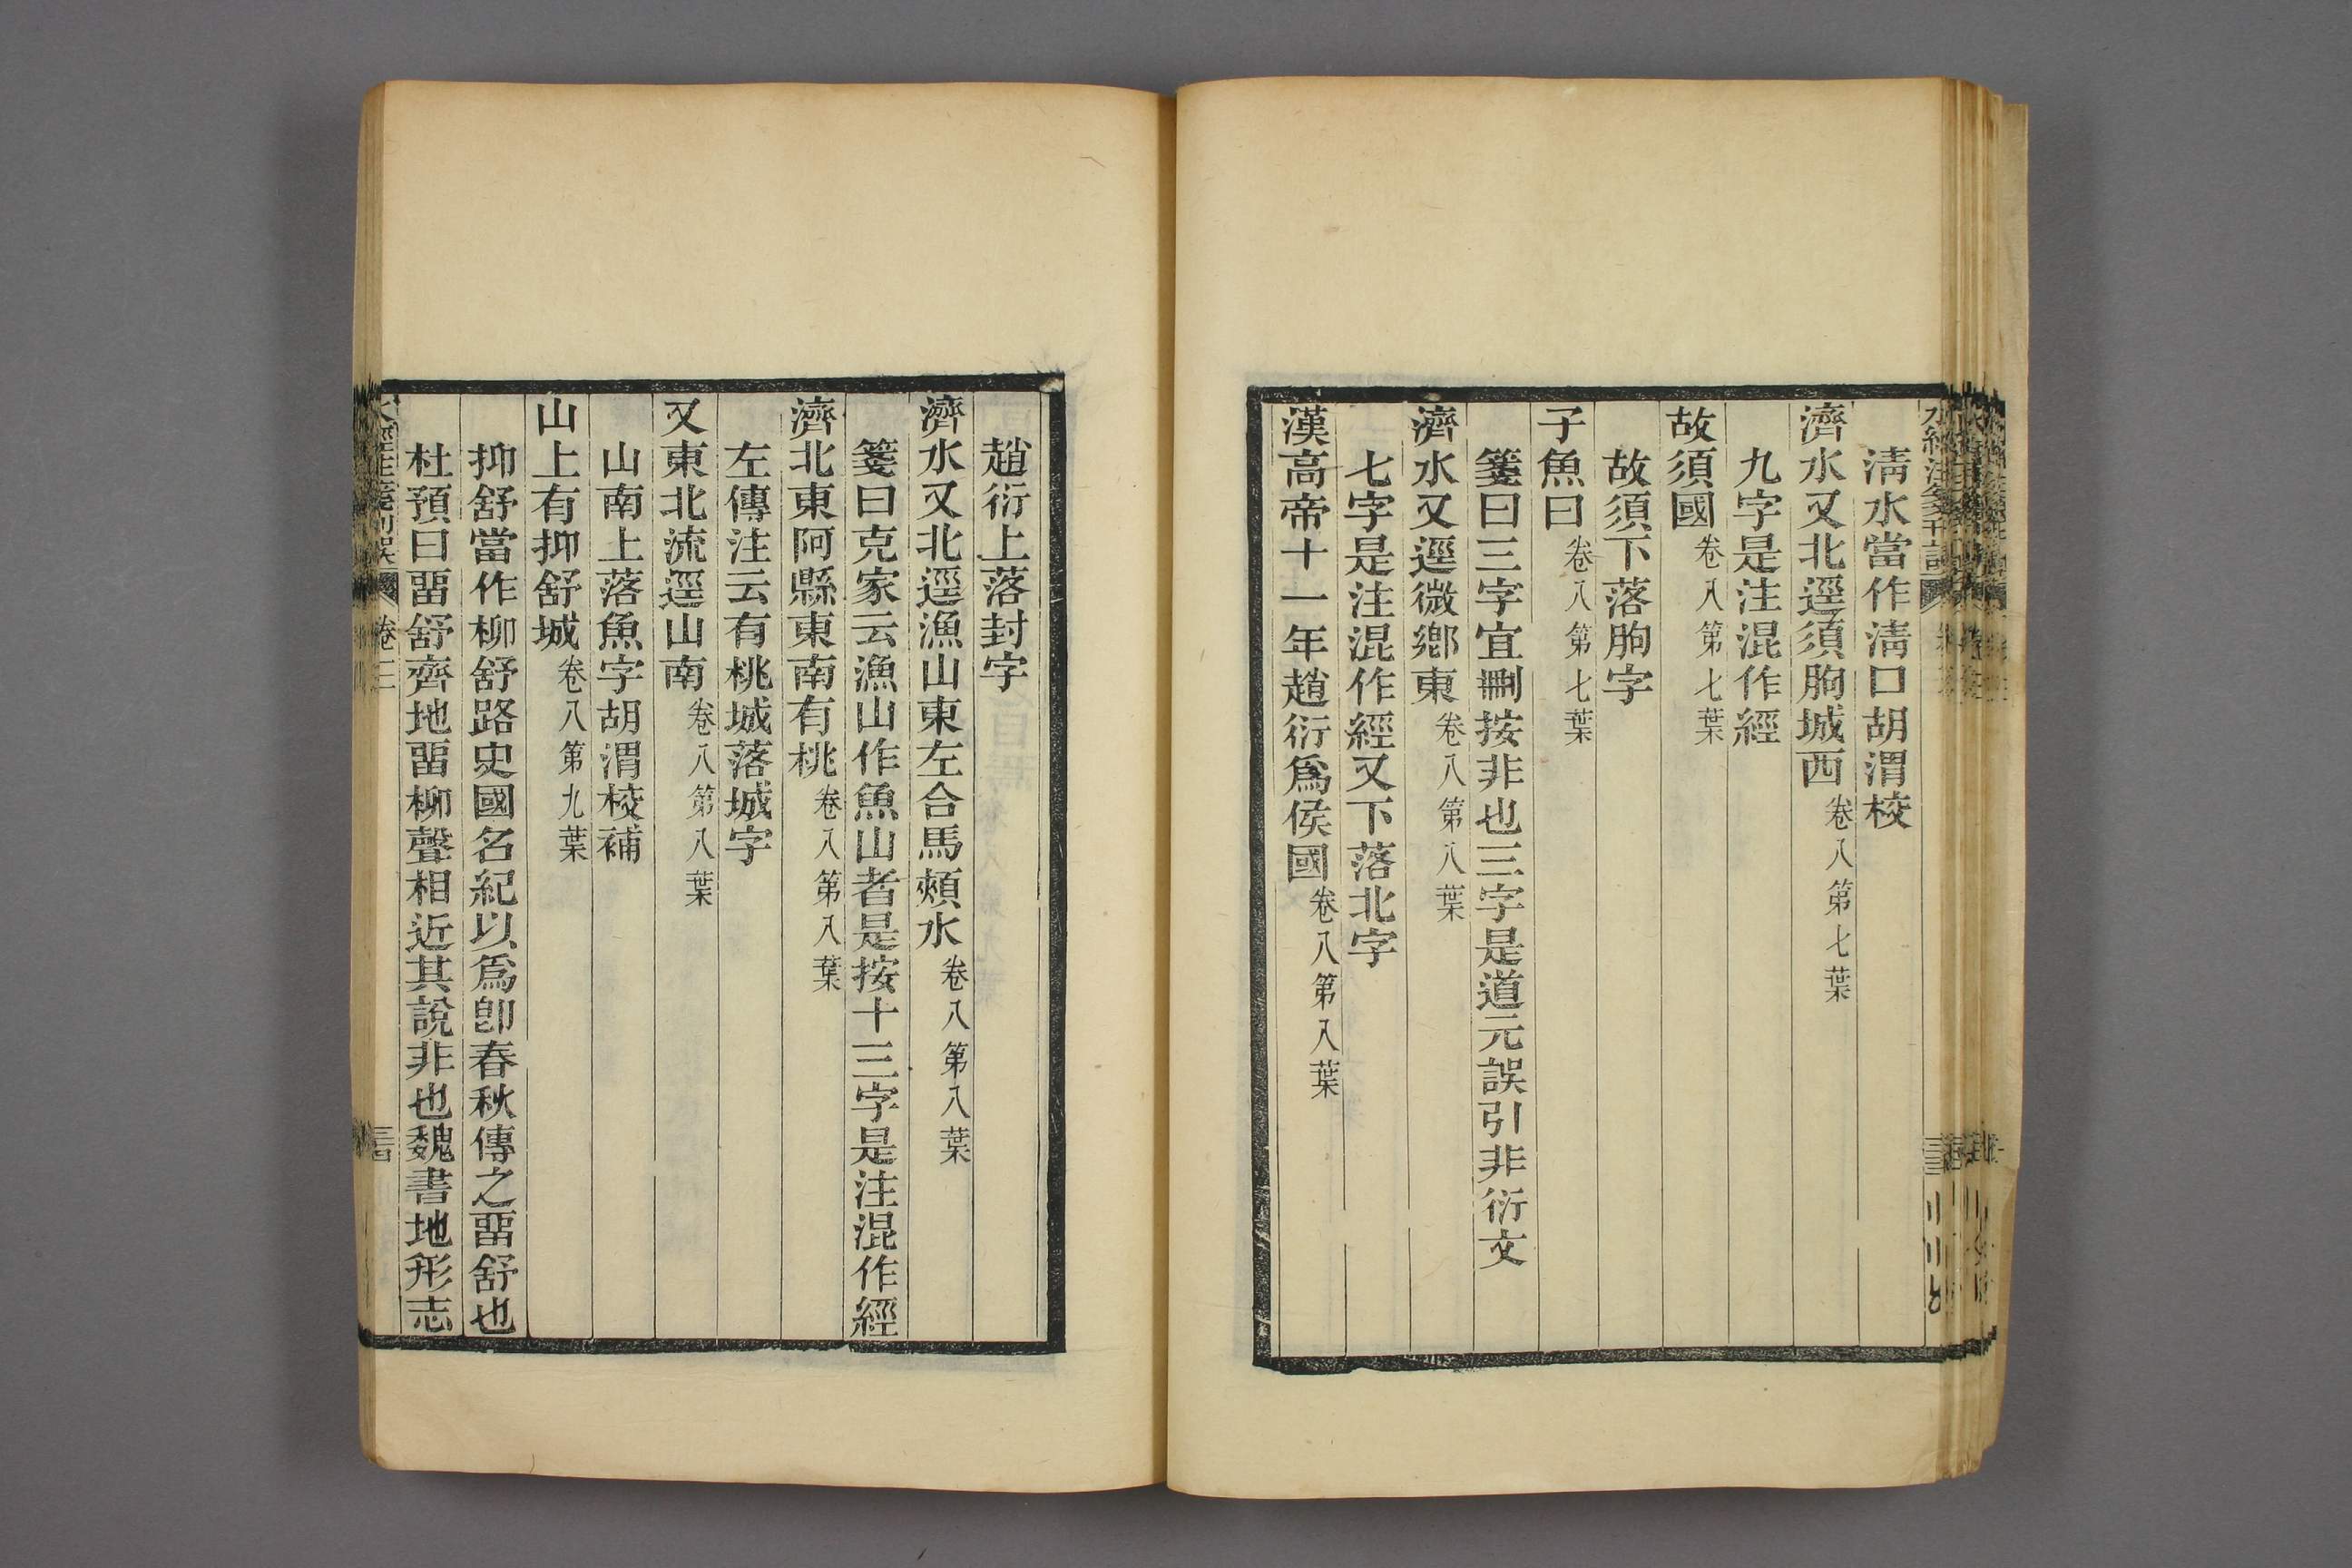 清水當作清口胡渭校
濟水又北逕須朐城西卷八第七葉
九字是注混作經
故須國卷八第七葉
故須下落朐字
子魚曰卷八第七葉
箋曰三字宜刪按非也三字是道元誤引非衍文
濟水又逕微鄉東卷八第八葉
七字是注混作經又下落北字
漢高帝十一年趙衍爲侯國卷八第八葉
趙衍上落封字
濟水又北逕漁山東左合馬頰水卷八第八葉
箋曰克家云漁山作魚山者是按十三字是注混作經
濟北東阿縣東南有桃卷八第八葉
左傳注云有桃城落城字
又東北流逕山南卷八第八葉
山南上落魚字胡渭校補
山上有抑舒城卷八第九葉
抑舒當作柳舒路史國名紀以爲卽春秋傳之畱舒也
杜預曰畱舒齊地畱柳聲相近其說非也魏書地形志
水經注箋刊誤 卷三 三四